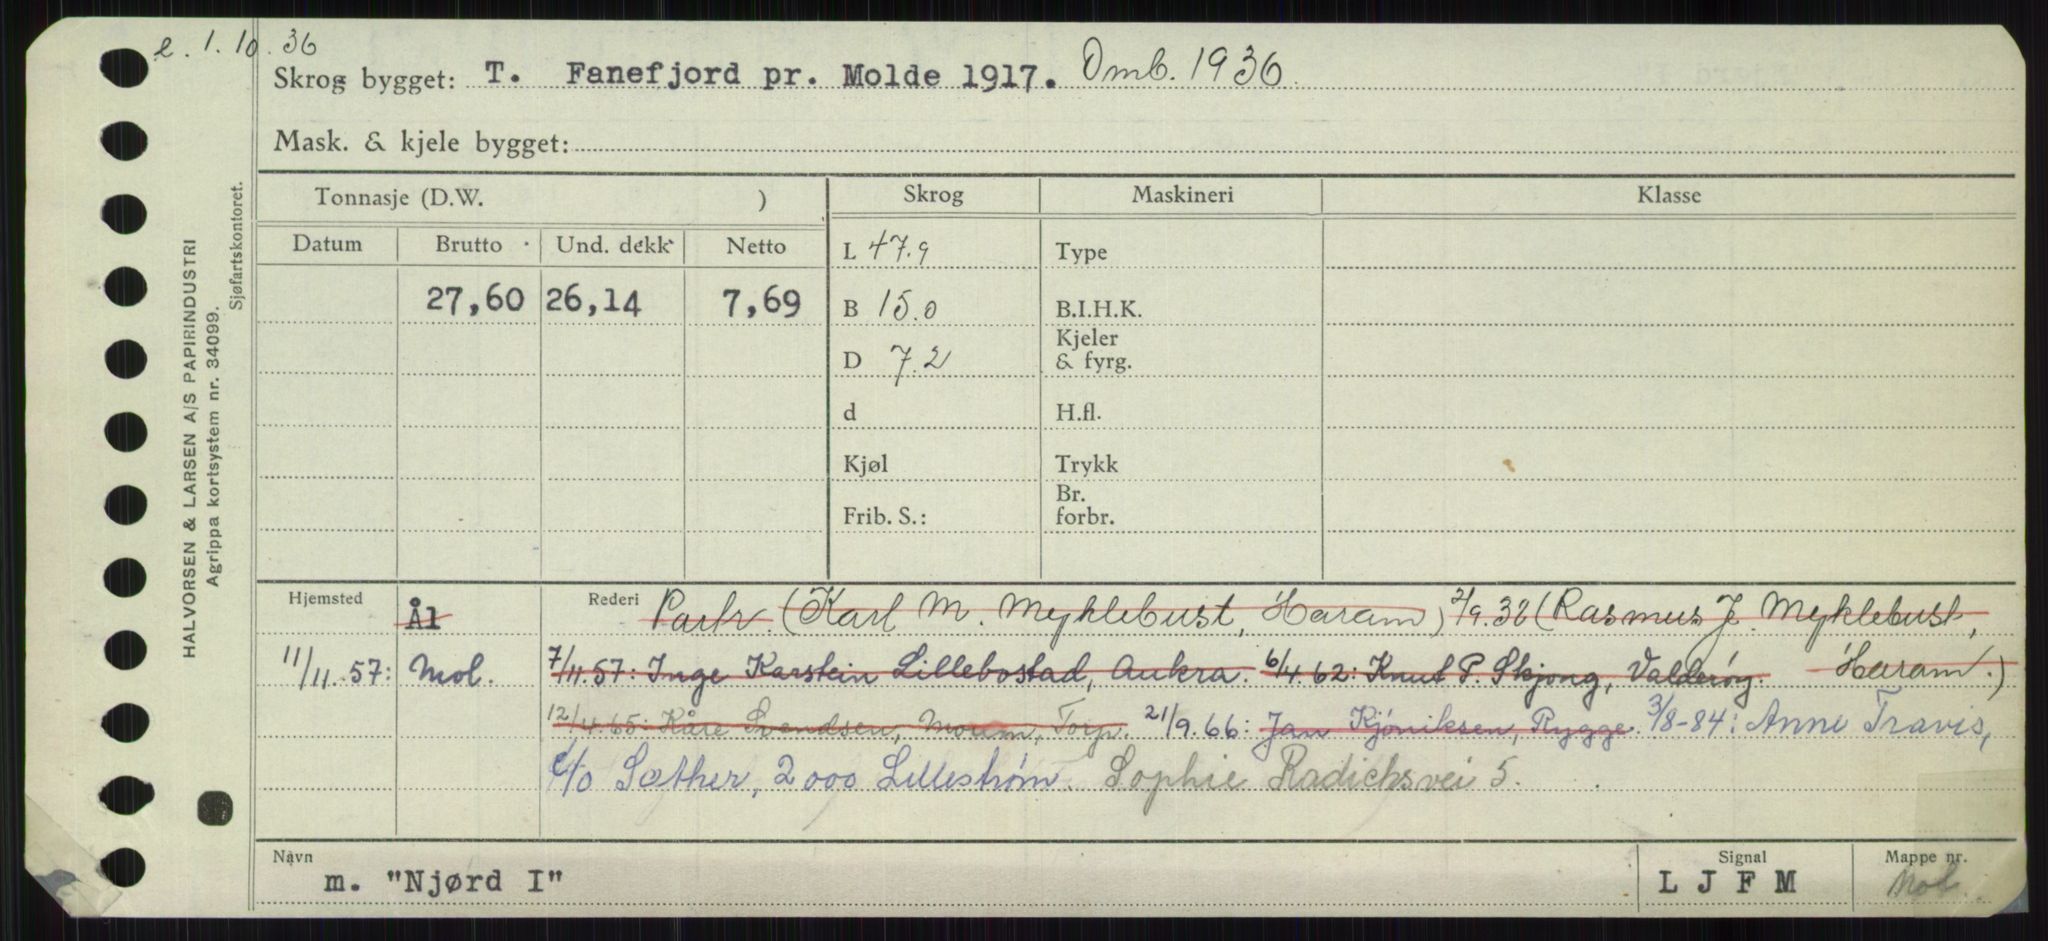 e. 1. 10. 36
Skrog bygget: T. Fanefjord pr. Molde 1917. Omb. 1936
Mask. & kjele bygget:
Tonnasje (D.W. ) Skrog Maskineri Klasse
Datum Brutto Und. dekk Netto L 47.9 Type
27,60 26,14 7,69 B 15.0 B.I.H.K.
Kjeler
D 7.2 & fyrg.
d H.fl.
Kjøl Trykk
Br.
Frib. S.: forbr.
Hjemsted Ål Rederi Partr. (Karl M. Myklebust, Haram) 2/9.38 (Rasmus J. Myklebust,
11/11.57: Mol. 7/11.57: Inge Karstein Lillebostad, Aukra. 6/4 62: Knut P. Skjong, Valderøy. Haram.)
12/4.65: Kåre Svendsen, Moum, Torp. 21/9.66: Jan Kjøniksen, Rygge. 3/8-84: Anne Travis,
c/o Sæther, 2000 Lillestrøm. Sophie Radichsvei 5.
Navn Signal Mappe nr.
m. "Njørd I" L J F M Mol.
HALVORSEN & LARSEN A/S PAPIRINDUSTRI
Agrippa kortsystem nr. 34099.
Sjøfartskontoret.